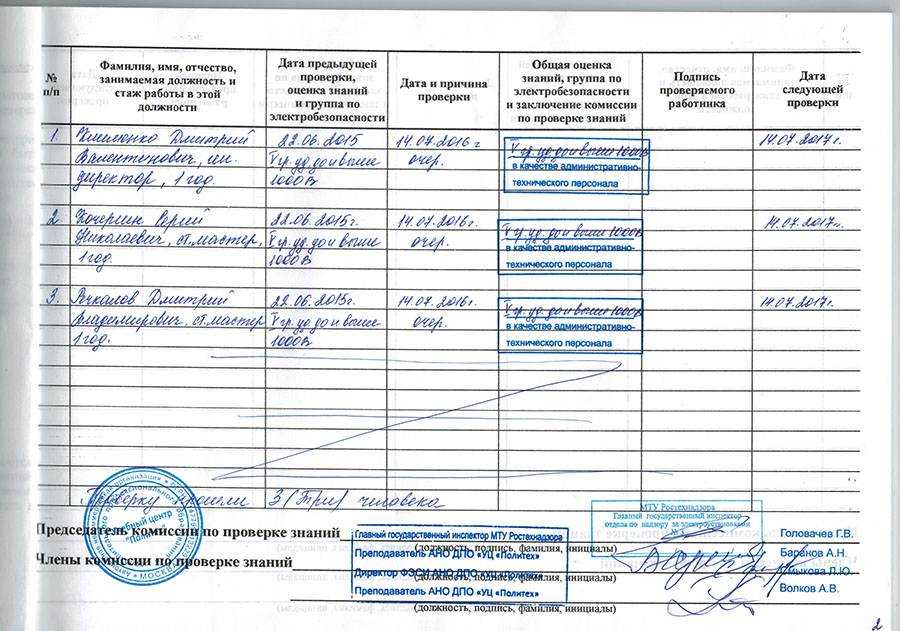 № п/п
Фамилия, имя, отчество, занимаемая должность и стаж работы в этой должности
Дата предыдущей проверки, оценка знаний и группа по электробезопасности
Дата и причина проверки
Общая оценка знаний, группа по электробезопасности и заключение комиссии по проверке знаний
Подпись проверяемого работника
Дата следующей проверки
1. Дмитрий 22.06.2015 14.07.2016 г 14.07.2017г.
Валентинович, ген. V гр. эл. до и выше очер. V гр. эл. до и выше 1000В
директор, 1 год. 1000В в качестве административно-
технического персонала
2 Кочергин Юрий 22.06.2015г. 14.07.2016г. 14.07.2017г.
Николаевич, ст. мастер, V гр. эл. до и выше очер. V гр. эл. до и выше 1000В
1 год 1000В в качестве административно-
технического персонала
3. Дмитрий 22.06.2015г. 14.07.2016г. 14.07.2017г.
Владимирович, ст. мастер V гр. эл. до и выше очер. V гр. эл. до и выше 1000В
1 год. 1000В в качестве административно-
технического персонала
Проверку прошли 3 (Три) человека
учебный центр
МОСКВА
МТУ Ростехнадзора
Главный государственный инспектор
отдела по надзору за электроустановками
Председатель комиссии по проверке знаний Главный государственный инспектор МТУ Ростехнадзора Головачев Г.В.
(должность, подпись, фамилия, инициалы)
Преподаватель АНО ДПО «УЦ «Политех» Баранов А.Н.
Члены комиссии по проверке знаний
Директор ФЭСИ АНО ДПО «УЦ «Политех»
(должность, подпись, фамилия, инициалы)
Преподаватель АНО ДПО «УЦ «Политех» Волков А.В.
(должность, подпись, фамилия, инициалы)
2